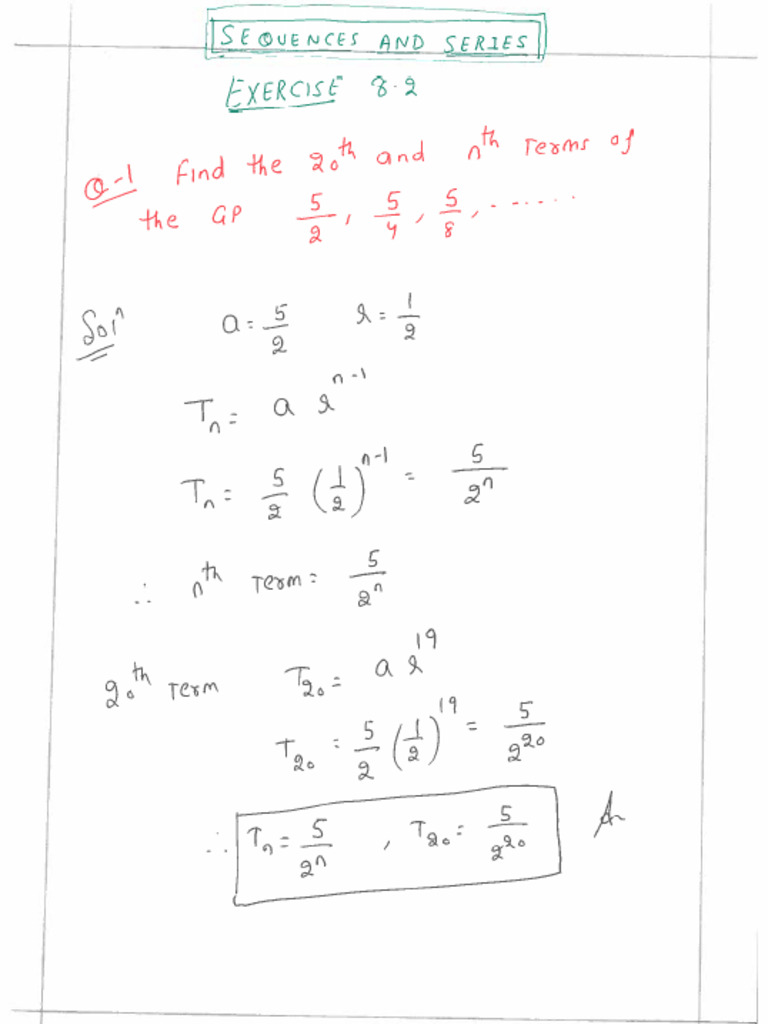 SEQUENCES AND SERIES
EXERCISE 8.2
Q-1 Find the 20th and nth terms of
the GP 5/2, 5/4, 5/8, .......
Solⁿ a = 5/2 r = 1/2
Tₙ = a r^(n-1)
Tₙ = 5/2 (1/2)^(n-1) = 5/2ⁿ
∴ nth term = 5/2ⁿ
20th term T₂₀ = a r^19
T₂₀ = 5/2 (1/2)^19 = 5/2^20
∴ Tₙ = 5/2ⁿ , T₂₀ = 5/2^20